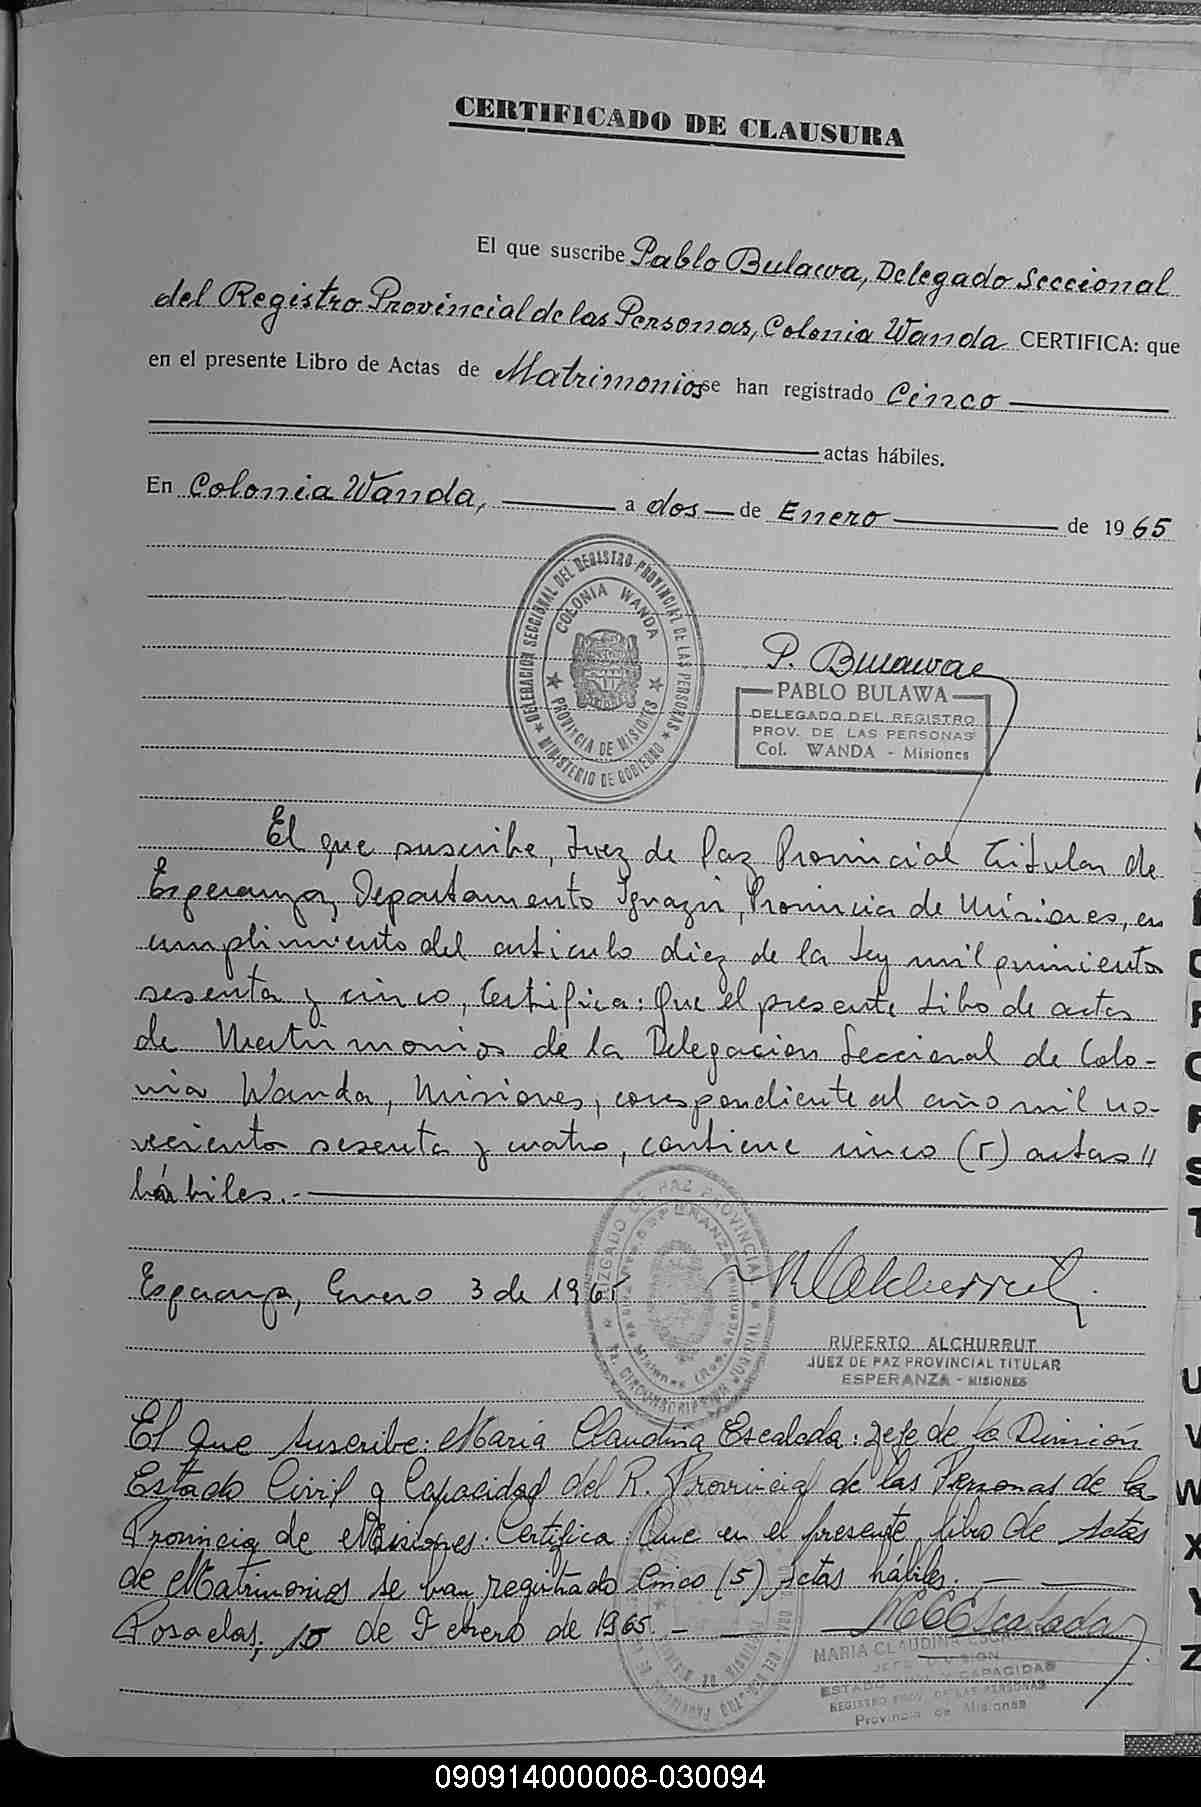 CERTIFICADO DE CLAUSURA
El que suscribe Pablo Bulawa, Delegado Seccional
del Registro Provincial de las Personas, Colonia Wanda CERTIFICA: que
en el presente Libro de Actas de Matrimonios se han registrado Cinco
actas hábiles.
En Colonia Wanda, a dos de Enero de 1965
DELEGACION SECCIONAL DEL REGISTRO PROVINCIAL DE LAS PERSONAS
COLONIA WANDA
PROVINCIA DE MISIONES
MINISTERIO DE GOBIERNO
P. Bulawa
PABLO BULAWA
DELEGADO DEL REGISTRO
PROV. DE LAS PERSONAS
Col. WANDA - Misiones
El que suscribe, Juez de Paz Provincial Titular de
Esperanza, Departamento Iguazú, Provincia de Misiones, en
cumplimiento del articulo diez de la Ley mil quinientos
sesenta y cinco, Certifica: Que el presente Libro de actas
de Matrimonios de la Delegacion Seccional de Colo-
nia Wanda, Misiones, correspondiente al año mil no-
vecientos sesenta y cuatro, contiene cinco (5) actas //
hábiles.-
JUZGADO DE PAZ PROVINCIAL
Esperanza, Enero 3 de 1965
RUPERTO ALCHURRUT
JUEZ DE PAZ PROVINCIAL TITULAR
ESPERANZA - MISIONES
El que suscribe: Maria Claudina Escalada: Jefe de la División
Estado Civil y Capacidad del R. Provincial de las Personas de la
Provincia de Misiones: Certifica: Que en el presente libro de Actas
de Matrimonios se han registrado Cinco (5) actas hábiles. —
Posadas, 10 de Febrero de 1965. - MCEscalada
MARIA CLAUDINA ESCALADA
JEFE DIVISION
ESTADO CIVIL Y CAPACIDAD
REGISTRO PROV. DE LAS PERSONAS
Provincia de Misiones
U
V
W
X
Y
Z
090914000008-030094